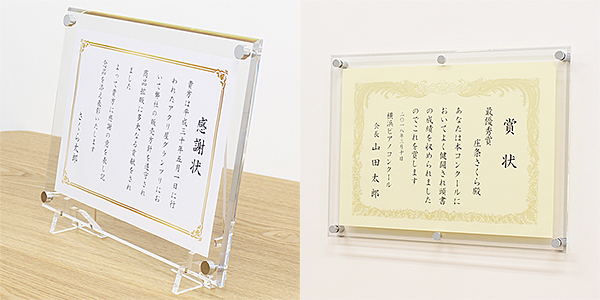 感謝状
貴方は平成三十年五月一日に行
われたアクリル屋グランプリにお
いて弊社の販売方針を遵守され
商品拡販に多大なる貢献をされ
ました
よって貴方に感謝の意を表し記
念品を添え表彰いたします
さくら太郎
賞状
最優秀賞
庄条さくら殿
あなたは本コンクールに
おいてよく健闘され頭書
の成績を収められました
のでこれを賞します
二〇一八年三月十日
横浜ピアノコンクール
会長 山田太郎